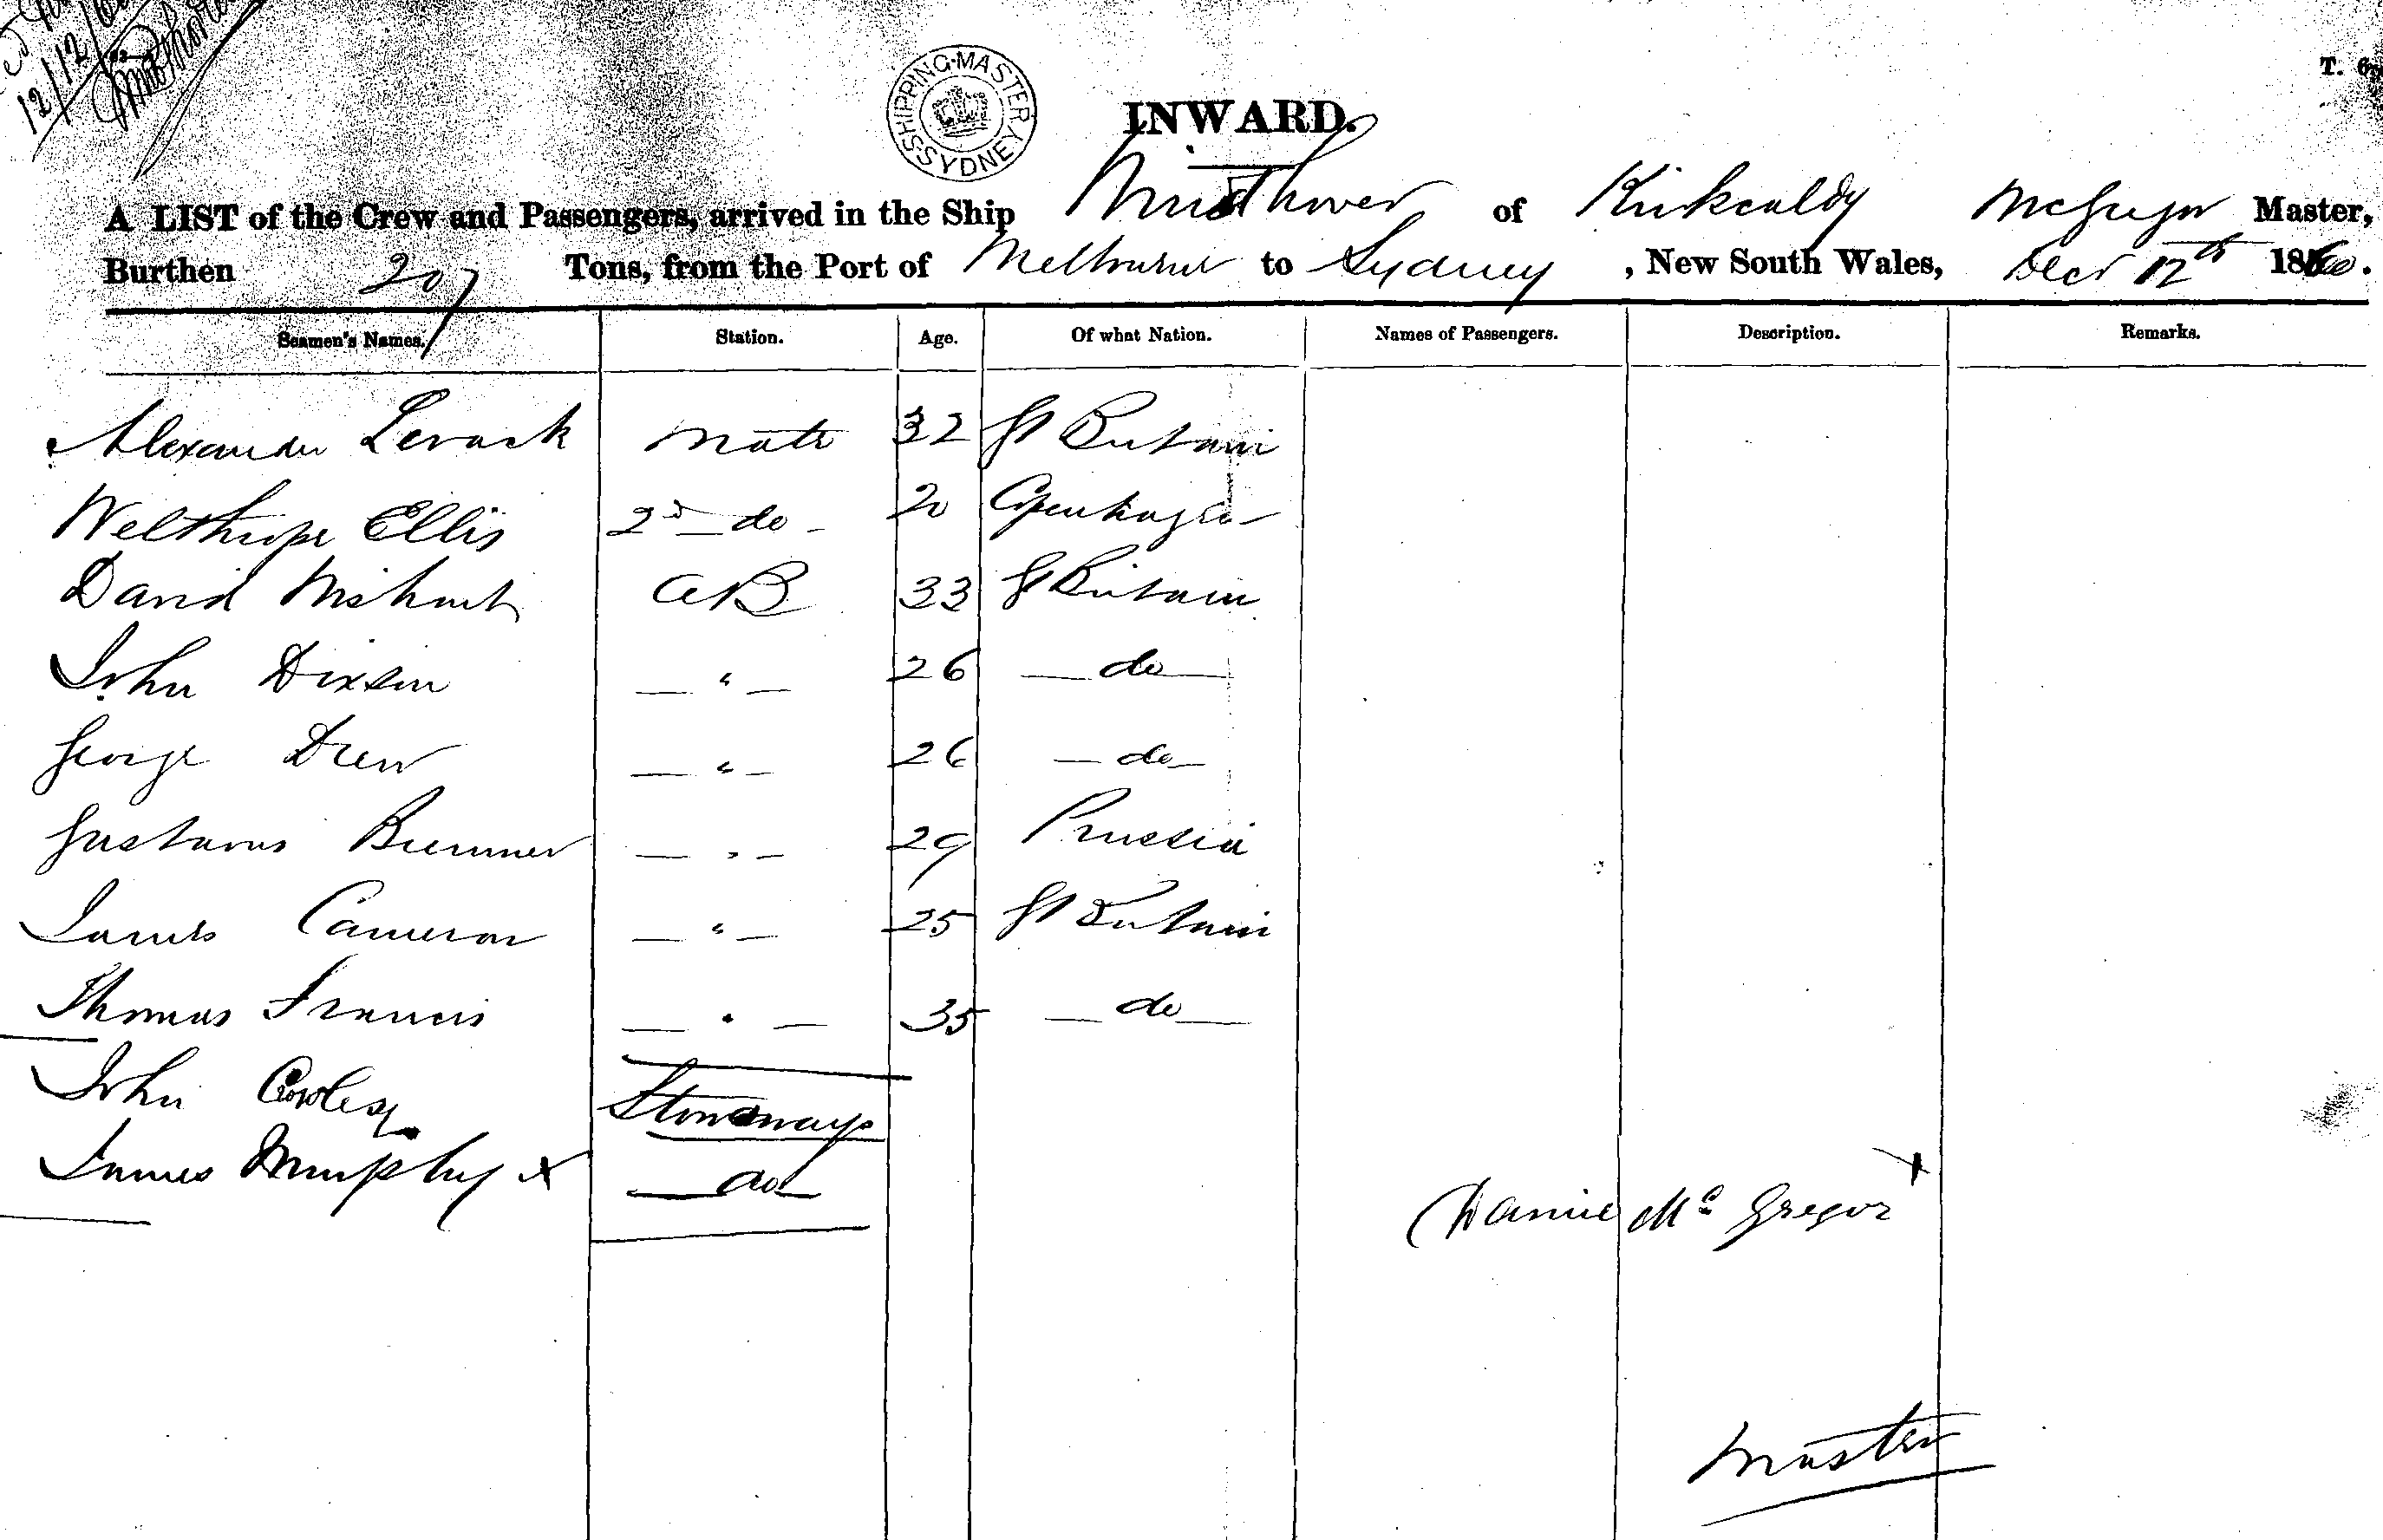 12/12/60
SHIPPING MASTER SYDNEY
T. 6
INWARD.
A LIST of the Crew and Passengers, arrived in the Ship of Kirkcaldy McGregor Master,
Burthen 207 Tons, from the Port of Melbourne to Sydney, New South Wales, Decr 12th 1860.
Seamen's Names. Station. Age. Of what Nation. Names of Passengers. Description. Remarks.
Alexander Levack Mate 32 Gt Britain
Welthrope Ellis 2d do 20 Copenhagen
David Wishart AB 33 Gt Britain
John Dixson — " — 26 — do —
George Drew — " — 26 — do —
Gustavus Bremmer — " — 29 Prussia
James Cameron — " — 25 Gt Britain
Thomas Francis — " — 35 — do —
John Stowaways
James Murphy x — do —
Daniel Mc Gregor
Master